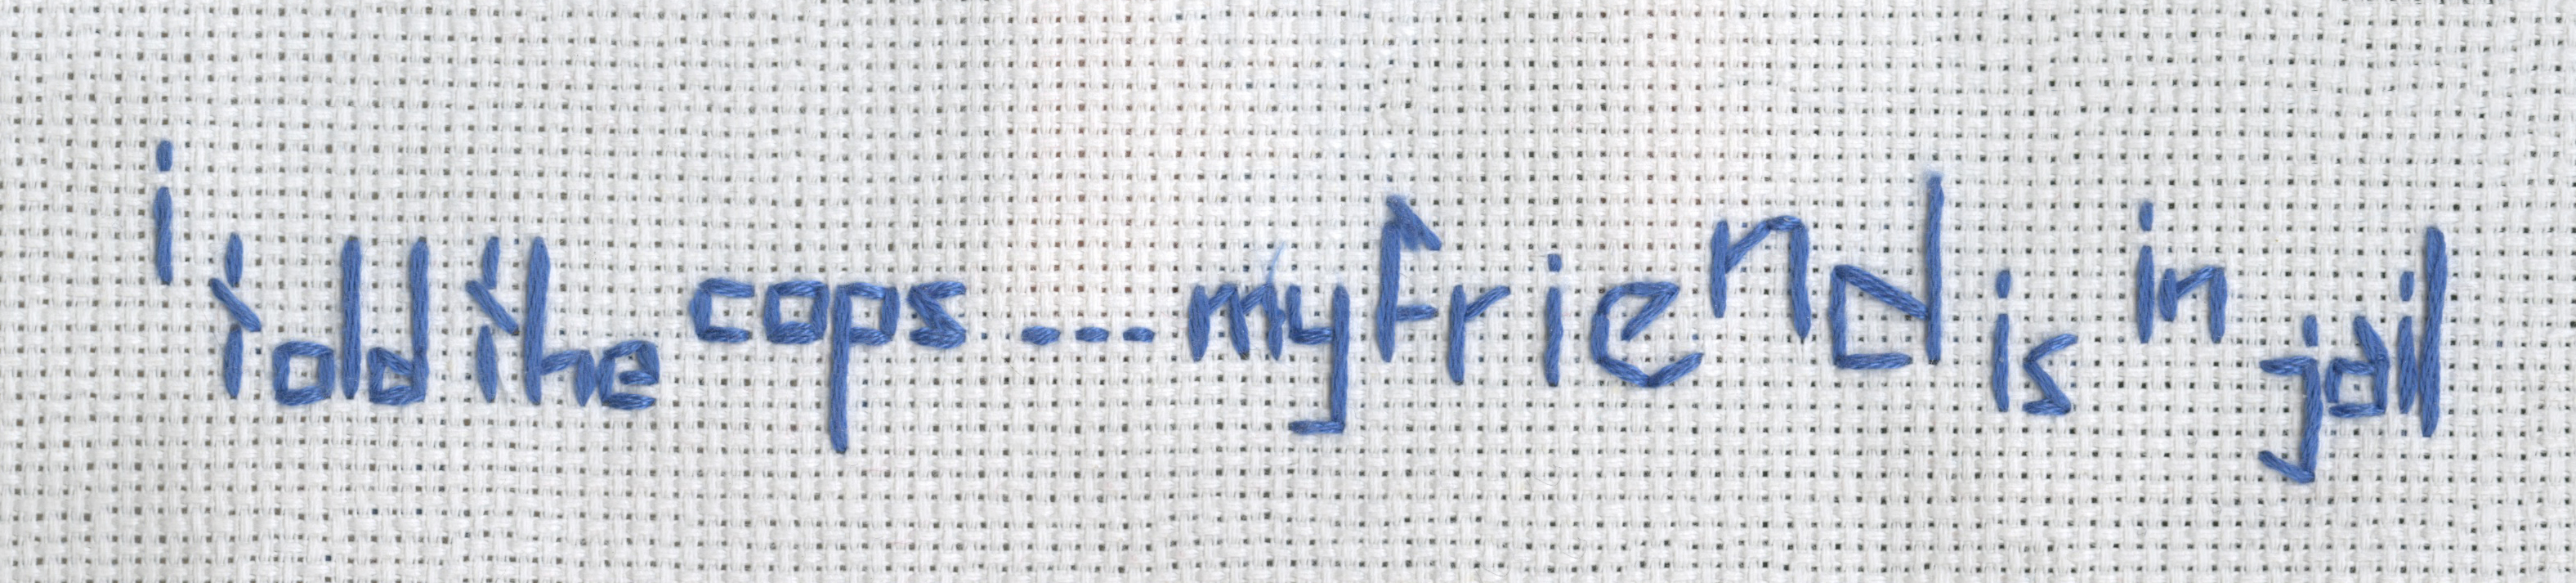 i told the cops --- my friend is in jail